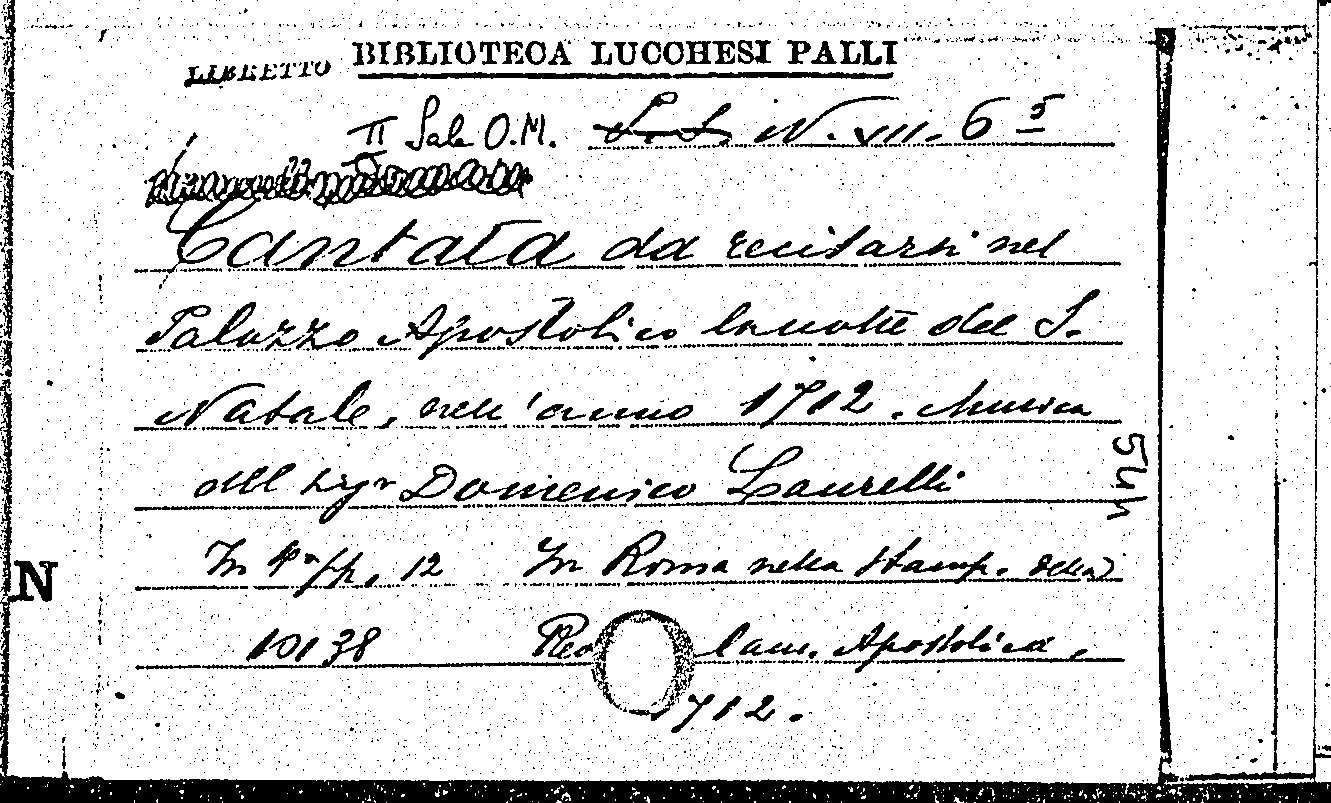 LIBRETTO BIBLIOTECA LUCCHESI PALLI
II Sala O.M. L.L. N. VII. 6 5
Cantata da recitarsi nel
Palazzo Apostolico la notte del S.
Natale, nell'anno 1712. Musica
dell Sigr Domenico Laurelli
In 4º/p. 12 In Roma nella Stamp. della
10138 Rev Cam. Apostolica,
1712.
N